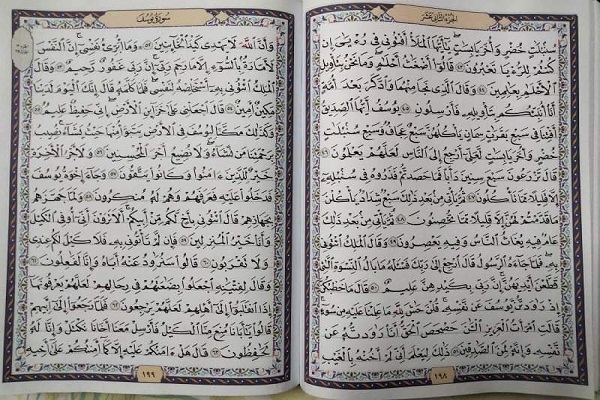 الجزء الثاني عشر
سُنۢبُلَٰتٍ خُضْرٍ وَأُخَرَ يَابِسَٰتٍ يَٰٓأَيُّهَا ٱلْمَلَأُ أَفْتُونِى فِى رُءْيَٰىَ إِن
كُنتُمْ لِلرُّءْيَا تَعْبُرُونَ ٤٣ قَالُوٓا۟ أَضْغَٰثُ أَحْلَٰمٍ وَمَا نَحْنُ بِتَأْوِيلِ
ٱلْأَحْلَٰمِ بِعَٰلِمِينَ ٤٤ وَقَالَ ٱلَّذِى نَجَا مِنْهُمَا وَٱدَّكَرَ بَعْدَ أُمَّةٍ
أَنَا۠ أُنَبِّئُكُم بِتَأْوِيلِهِۦ فَأَرْسِلُونِ ٤٥ يُوسُفُ أَيُّهَا ٱلصِّدِّيقُ
أَفْتِنَا فِى سَبْعِ بَقَرَٰتٍ سِمَانٍ يَأْكُلُهُنَّ سَبْعٌ عِجَافٌ وَسَبْعِ سُنۢبُلَٰتٍ
خُضْرٍ وَأُخَرَ يَابِسَٰتٍ لَّعَلِّىٓ أَرْجِعُ إِلَى ٱلنَّاسِ لَعَلَّهُمْ يَعْلَمُونَ ٤٦
قَالَ تَزْرَعُونَ سَبْعَ سِنِينَ دَأَبًا فَمَا حَصَدتُّمْ فَذَرُوهُ فِى سُنۢبُلِهِۦٓ
إِلَّا قَلِيلًا مِّمَّا تَأْكُلُونَ ٤٧ ثُمَّ يَأْتِى مِنۢ بَعْدِ ذَٰلِكَ سَبْعٌ شِدَادٌ يَأْكُلْنَ
مَا قَدَّمْتُمْ لَهُنَّ إِلَّا قَلِيلًا مِّمَّا تُحْصِنُونَ ٤٨ ثُمَّ يَأْتِى مِنۢ بَعْدِ ذَٰلِكَ
عَامٌ فِيهِ يُغَاثُ ٱلنَّاسُ وَفِيهِ يَعْصِرُونَ ٤٩ وَقَالَ ٱلْمَلِكُ ٱئْتُونِى
بِهِۦ فَلَمَّا جَآءَهُ ٱلرَّسُولُ قَالَ ٱرْجِعْ إِلَىٰ رَبِّكَ فَسْـَٔلْهُ مَا بَالُ ٱلنِّسْوَةِ ٱلَّٰتِى
قَطَّعْنَ أَيْدِيَهُنَّ إِنَّ رَبِّى بِكَيْدِهِنَّ عَلِيمٌ ٥٠ قَالَ مَا خَطْبُكُنَّ
إِذْ رَٰوَدتُّنَّ يُوسُفَ عَن نَّفْسِهِۦ قُلْنَ حَٰشَ لِلَّهِ مَا عَلِمْنَا عَلَيْهِ مِن سُوٓءٍ
قَالَتِ ٱمْرَأَتُ ٱلْعَزِيزِ ٱلْـَٰٔنَ حَصْحَصَ ٱلْحَقُّ أَنَا۠ رَٰوَدتُّهُۥ عَن
نَّفْسِهِۦ وَإِنَّهُۥ لَمِنَ ٱلصَّٰدِقِينَ ٥١ ذَٰلِكَ لِيَعْلَمَ أَنِّى لَمْ أَخُنْهُ بِٱلْغَيْبِ
١٩٨
سورة يوسف
وَأَنَّ ٱللَّهَ لَا يَهْدِى كَيْدَ ٱلْخَآئِنِينَ ٥٢ وَمَآ أُبَرِّئُ نَفْسِىٓ إِنَّ ٱلنَّفْسَ
لَأَمَّارَةٌۢ بِٱلسُّوٓءِ إِلَّا مَا رَحِمَ رَبِّىٓ إِنَّ رَبِّى غَفُورٌ رَّحِيمٌ ٥٣ وَقَالَ
ٱلْمَلِكُ ٱئْتُونِى بِهِۦٓ أَسْتَخْلِصْهُ لِنَفْسِى فَلَمَّا كَلَّمَهُۥ قَالَ إِنَّكَ ٱلْيَوْمَ لَدَيْنَا
مَكِينٌ أَمِينٌ ٥٤ قَالَ ٱجْعَلْنِى عَلَىٰ خَزَآئِنِ ٱلْأَرْضِ إِنِّى حَفِيظٌ عَلِيمٌ ٥٥
وَكَذَٰلِكَ مَكَّنَّا لِيُوسُفَ فِى ٱلْأَرْضِ يَتَبَوَّأُ مِنْهَا حَيْثُ يَشَآءُ نُصِيبُ
بِرَحْمَتِنَا مَن نَّشَآءُ وَلَا نُضِيعُ أَجْرَ ٱلْمُحْسِنِينَ ٥٦ وَلَأَجْرُ ٱلْـَٔاخِرَةِ
خَيْرٌ لِّلَّذِينَ ءَامَنُوا۟ وَكَانُوا۟ يَتَّقُونَ ٥٧ وَجَآءَ إِخْوَةُ يُوسُفَ
فَدَخَلُوا۟ عَلَيْهِ فَعَرَفَهُمْ وَهُمْ لَهُۥ مُنكِرُونَ ٥٨ وَلَمَّا جَهَّزَهُم
بِجَهَازِهِمْ قَالَ ٱئْتُونِى بِأَخٍ لَّكُم مِّنْ أَبِيكُمْ أَلَا تَرَوْنَ أَنِّىٓ أُوفِى ٱلْكَيْلَ
وَأَنَا۠ خَيْرُ ٱلْمُنزِلِينَ ٥٩ فَإِن لَّمْ تَأْتُونِى بِهِۦ فَلَا كَيْلَ لَكُمْ عِندِى
وَلَا تَقْرَبُونِ ٦٠ قَالُوا۟ سَنُرَٰوِدُ عَنْهُ أَبَاهُ وَإِنَّا لَفَٰعِلُونَ ٦١
وَقَالَ لِفِتْيَٰنِهِ ٱجْعَلُوا۟ بِضَٰعَتَهُمْ فِى رِحَالِهِمْ لَعَلَّهُمْ يَعْرِفُونَهَآ
إِذَا ٱنقَلَبُوٓا۟ إِلَىٰٓ أَهْلِهِمْ لَعَلَّهُمْ يَرْجِعُونَ ٦٢ فَلَمَّا رَجَعُوٓا۟ إِلَىٰٓ أَبِيهِمْ
قَالُوا۟ يَٰٓأَبَانَا مُنِعَ مِنَّا ٱلْكَيْلُ فَأَرْسِلْ مَعَنَآ أَخَانَا نَكْتَلْ وَإِنَّا لَهُۥ
لَحَٰفِظُونَ ٦٣ قَالَ هَلْ ءَامَنُكُمْ عَلَيْهِ إِلَّا كَمَآ أَمِنتُكُمْ عَلَىٰٓ أَخِيهِ
١٩٩